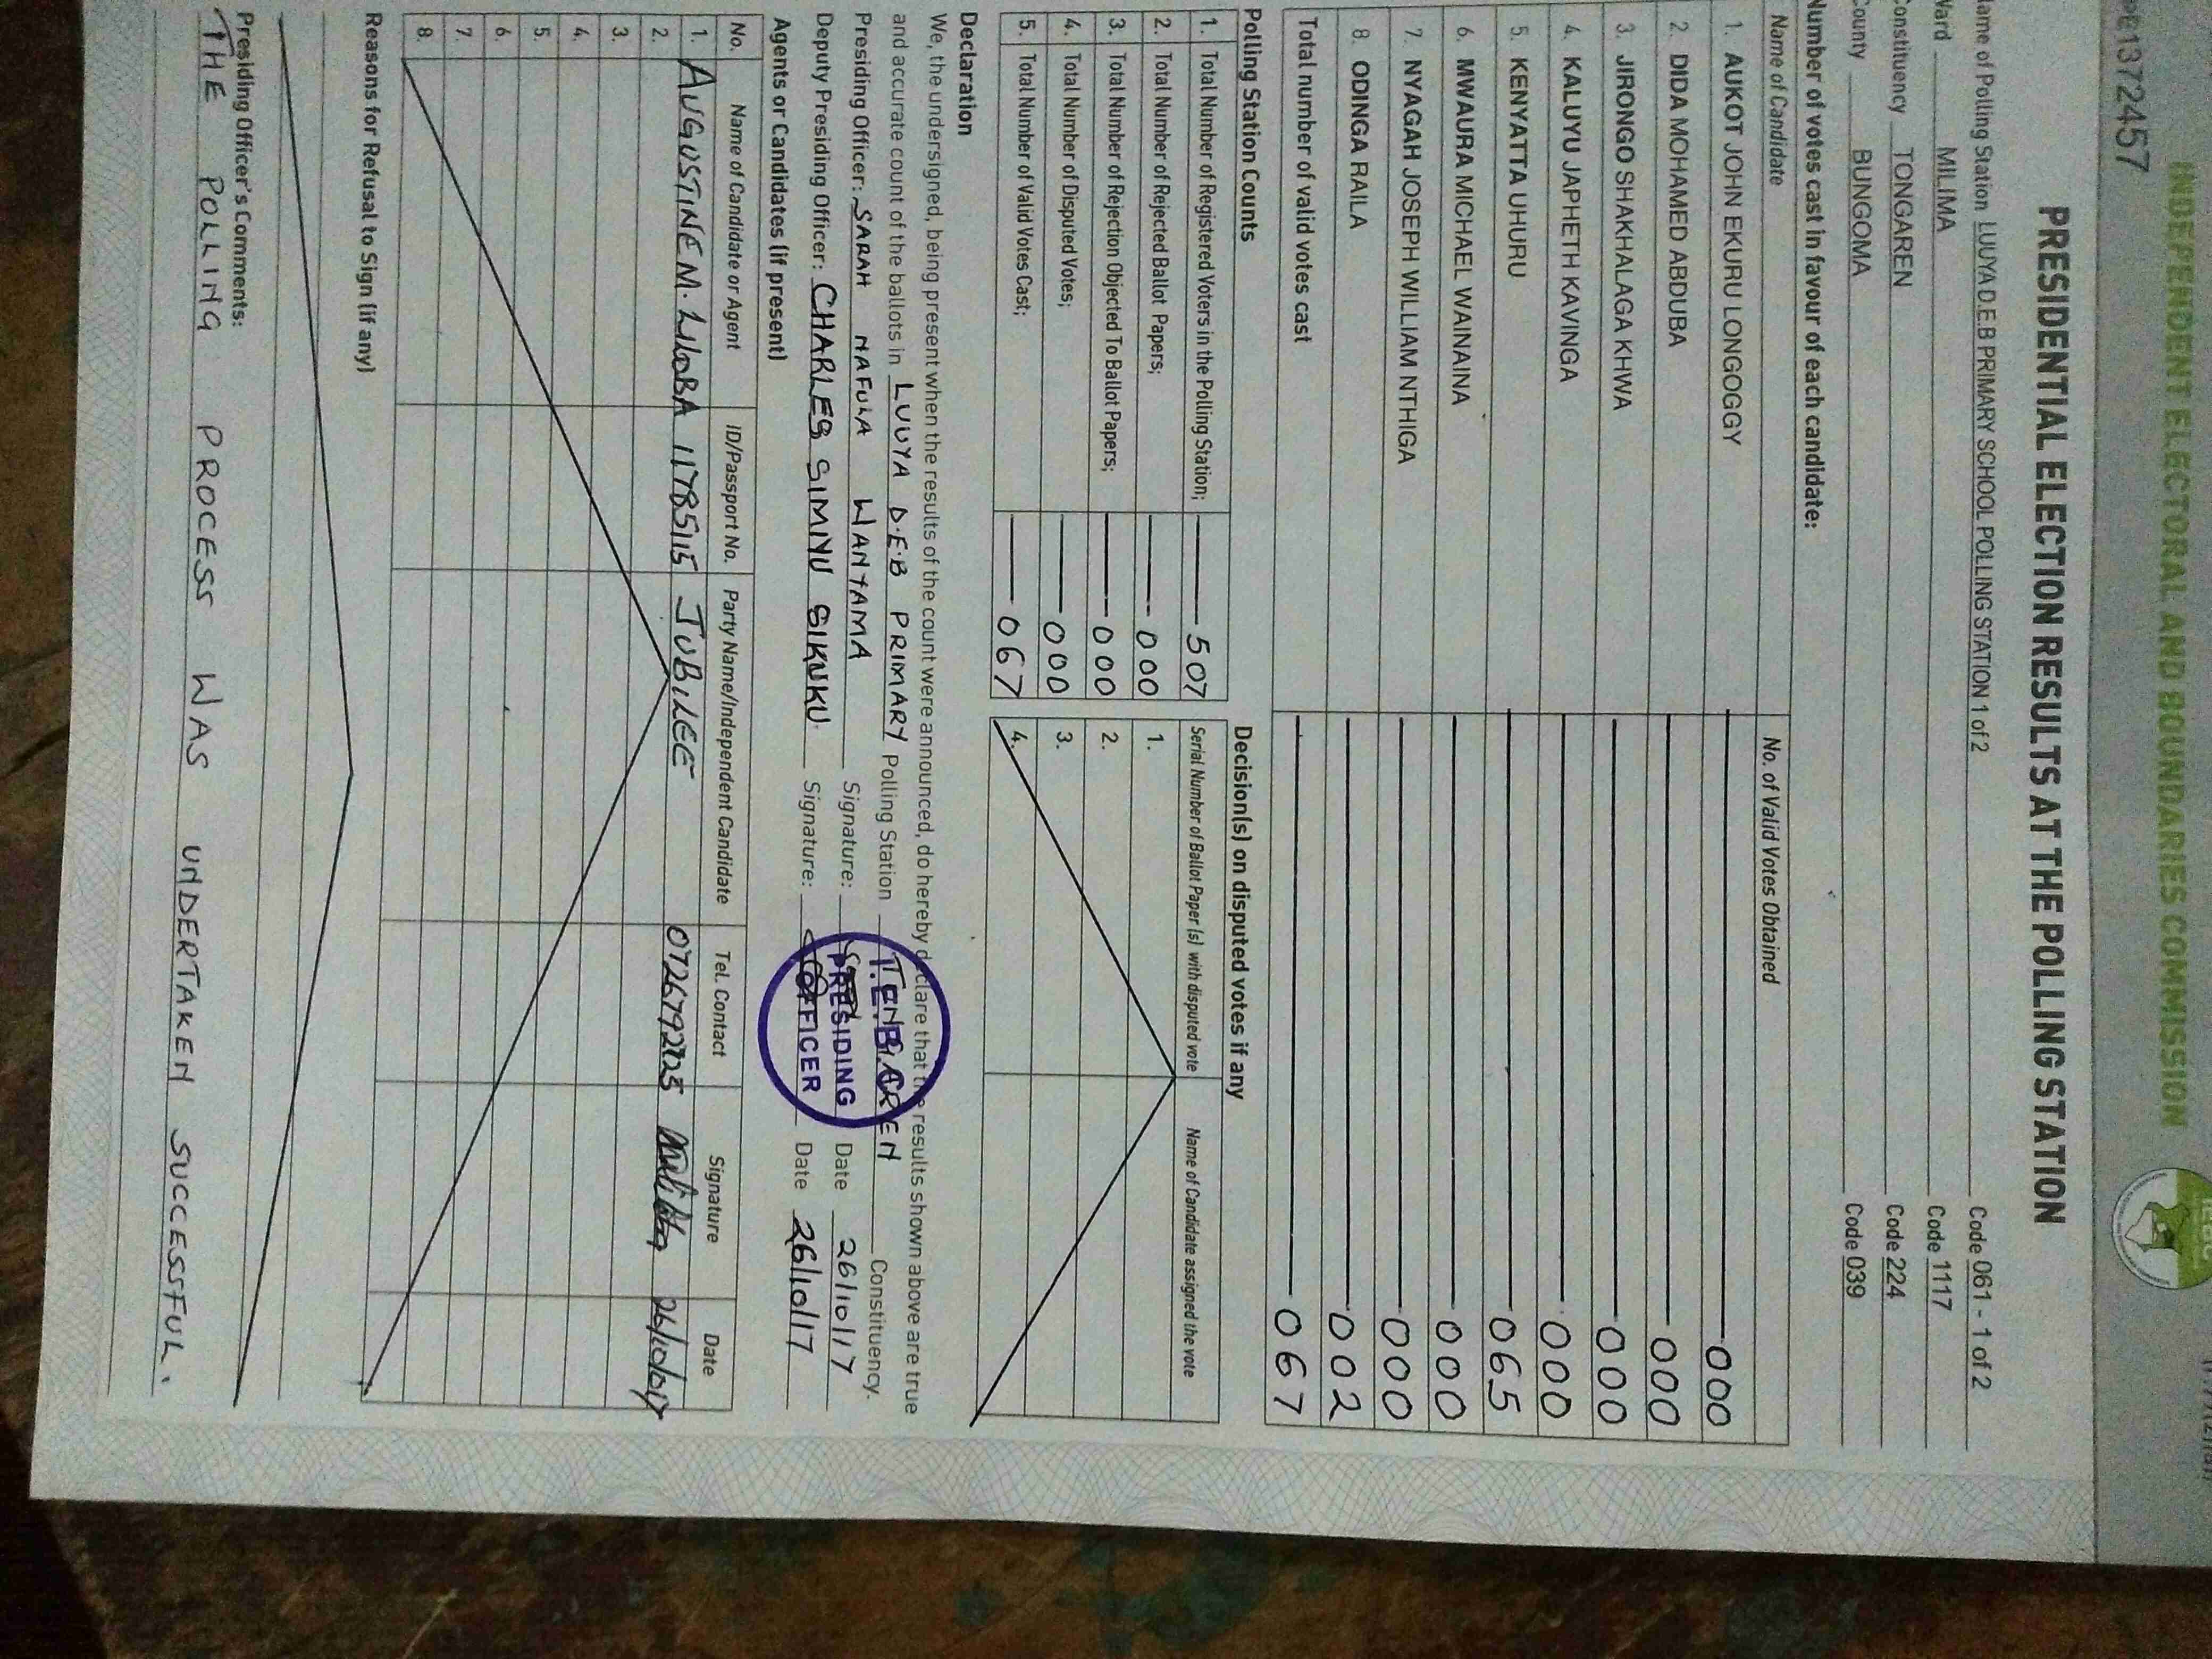 INDEPENDENT ELECTORAL AND BOUNDARIES COMMISSION
PRESIDENTIAL ELECTION RESULTS AT THE POLLING STATION
Name of Polling Station LUUYA D.E.B PRIMARY SCHOOL POLLING STATION 1 of 2 Code 061 - 1 of 2
Ward MILIMA Code 1117
Constituency TONGAREN Code 224
County BUNGOMA Code 039
Number of votes cast in favour of each candidate:
Name of Candidate No. of Valid Votes Obtained
1. AUKOT JOHN EKURU LONGOGGY 000
2. DIDA MOHAMED ABDUBA 000
3. JIRONGO SHAKHALAGA KHWA 000
4. KALUYU JAPHETH KAVINGA 000
5. KENYATTA UHURU 065
6. MWAURA MICHAEL WAINAINA 000
7. NYAGAH JOSEPH WILLIAM NTHIGA 000
8. ODINGA RAILA 002
Total number of valid votes cast 067
Polling Station Counts Decision(s) on disputed votes if any
1. Total Number of Registered Voters in the Polling Station; 507 Serial Number of Ballot Paper (s) with disputed vote Name of Candidate assigned the vote
2. Total Number of Rejected Ballot Papers; 000 1.
3. Total Number of Rejection Objected To Ballot Papers; 000 2.
4. Total Number of Disputed Votes; 000 3.
5. Total Number of Valid Votes Cast; 067 4.
Declaration
We, the undersigned, being present when the results of the count were announced, do hereby declare that the results shown above are true
and accurate count of the ballots in LUUYA D.E.B PRIMARY Polling Station TONGAREN Constituency.
Presiding Officer: SARAH NAFULA WANYAMA Signature: Date 26/10/17
Deputy Presiding Officer: CHARLES SIMIYU SIKUKU. Signature: Date 26/10/17
I.E.B.C
PRESIDING
OFFICER
Agents or Candidates (if present)
No. Name of Candidate or Agent ID/Passport No. Party Name/Independent Candidate Tel. Contact Signature Date
1. AUGUSTINE M. 11785115 JUBILEE 26/10/17
2.
3.
4.
5.
6.
7.
8.
Reasons for Refusal to Sign (if any)
Presiding Officer's Comments:
THE POLLING PROCESS WAS UNDERTAKEN SUCCESSFUL.